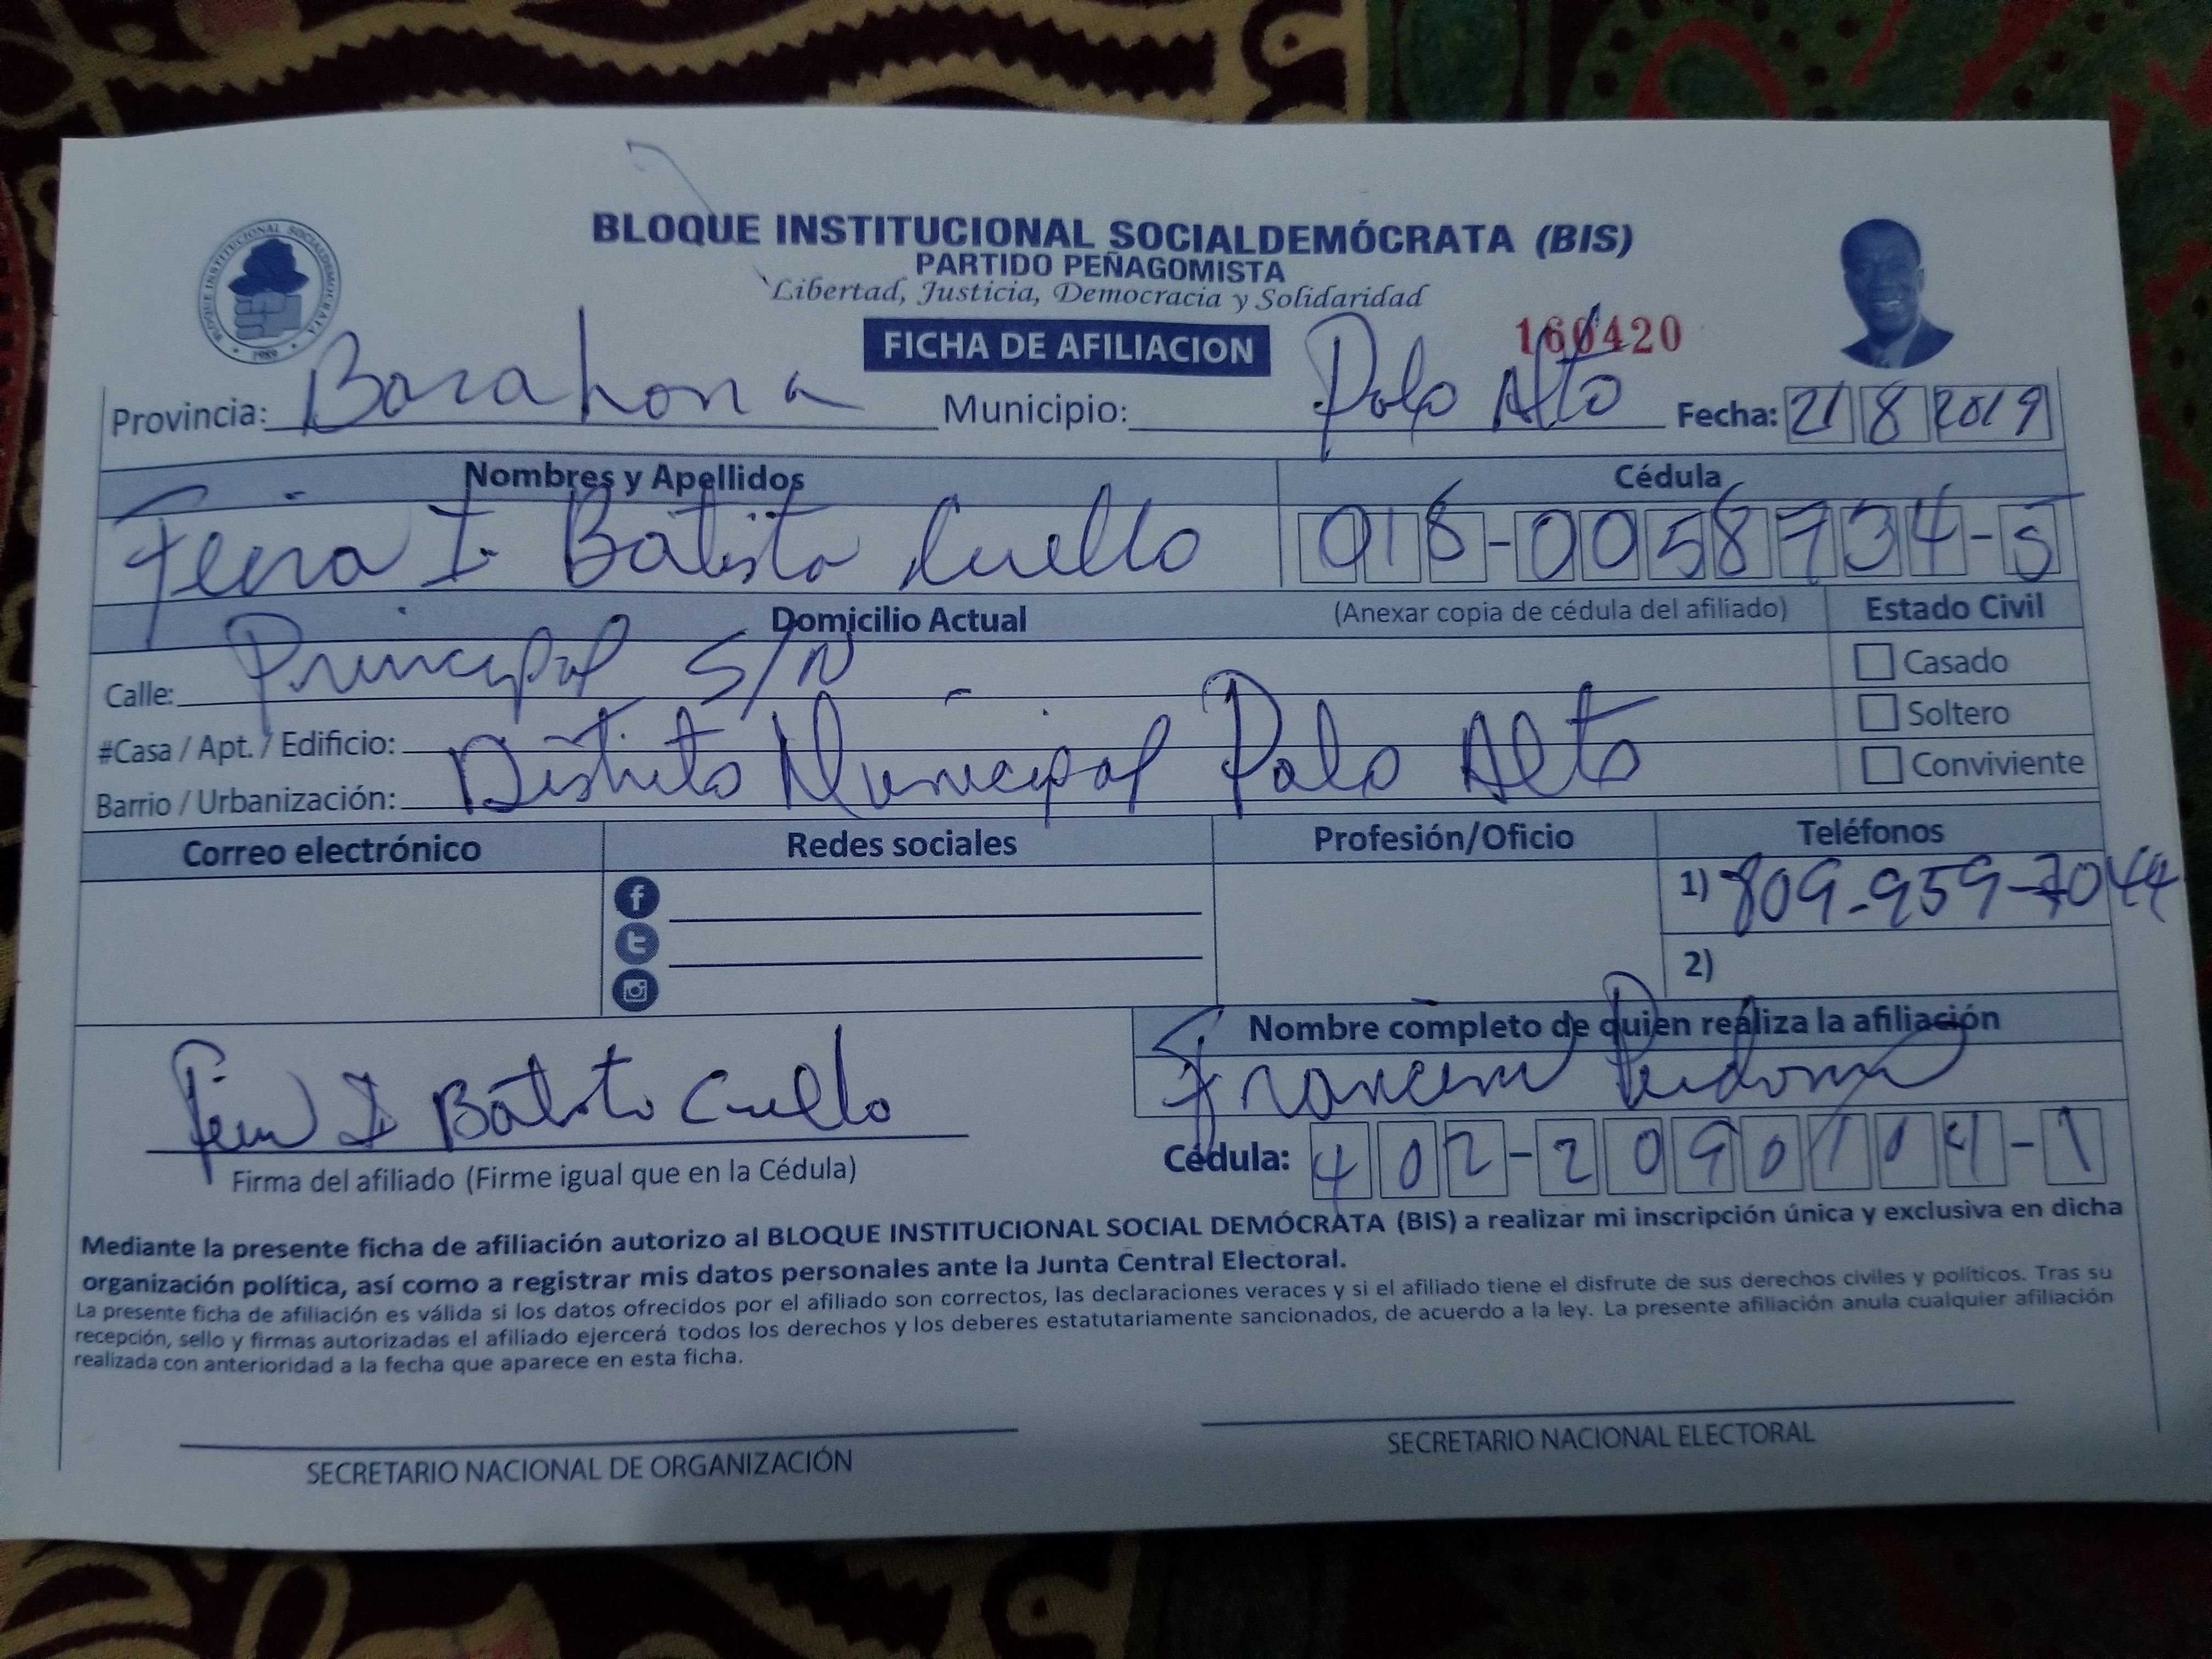 BLOQUE INSTITUCIONAL SOCIALDEMÓCRATA (BIS)
PARTIDO PEÑAGOMISTA
Libertad, Justicia, Democracia y Solidaridad
BLOQUE INSTITUCIONAL SOCIALDEMOCRATA
1989
FICHA DE AFILIACION
160420
Provincia: Barahona Municipio: Palo Alto Fecha: 21 8 2019
Nombres y Apellidos Cédula
I. Batista Cuello 018-0058734-5
Domicilio Actual (Anexar copia de cédula del afiliado) Estado Civil
Calle: Principal S/N Casado
#Casa / Apt. / Edificio: Soltero
Barrio / Urbanización: Distrito Municipal Palo Alto Conviviente
Correo electrónico Redes sociales Profesión/Oficio Teléfonos
1) 809-959-7044
2)
Nombre completo de quien realiza la afiliación
I Batista Cuello
Firma del afiliado (Firme igual que en la Cédula)
Cédula: 402-2090104-1
Mediante la presente ficha de afiliación autorizo al BLOQUE INSTITUCIONAL SOCIAL DEMÓCRATA (BIS) a realizar mi inscripción única y exclusiva en dicha
organización política, así como a registrar mis datos personales ante la Junta Central Electoral.
La presente ficha de afiliación es válida si los datos ofrecidos por el afiliado son correctos, las declaraciones veraces y si el afiliado tiene el disfrute de sus derechos civiles y políticos. Tras su
recepción, sello y firmas autorizadas el afiliado ejercerá todos los derechos y los deberes estatutariamente sancionados, de acuerdo a la ley. La presente afiliación anula cualquier afiliación
realizada con anterioridad a la fecha que aparece en esta ficha.
SECRETARIO NACIONAL DE ORGANIZACIÓN
SECRETARIO NACIONAL ELECTORAL